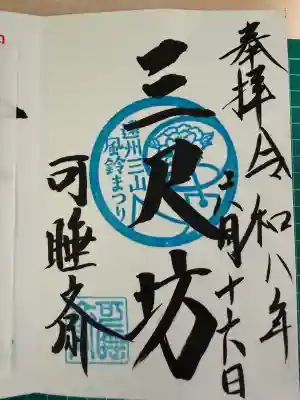 奉拝 令和八年
六月十六日
三尺坊
遠州三山
風鈴まつり
可睡斎